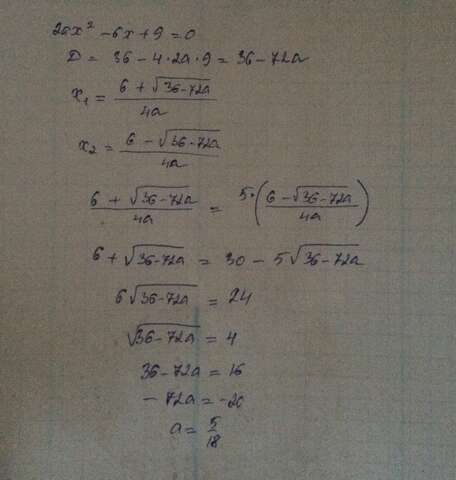 2ax² - 6x + 9 = 0
D = 36 - 4·2a·9 = 36 - 72a
x₁ = (6 + √(36-72a)) / 4a
x₂ = (6 - √(36-72a)) / 4a
(6 + √(36-72a)) / 4a = 5·((6 - √(36-72a)) / 4a)
6 + √(36-72a) = 30 - 5√(36-72a)
6√(36-72a) = 24
√(36-72a) = 4
36-72a = 16
-72a = -20
a = 5/18